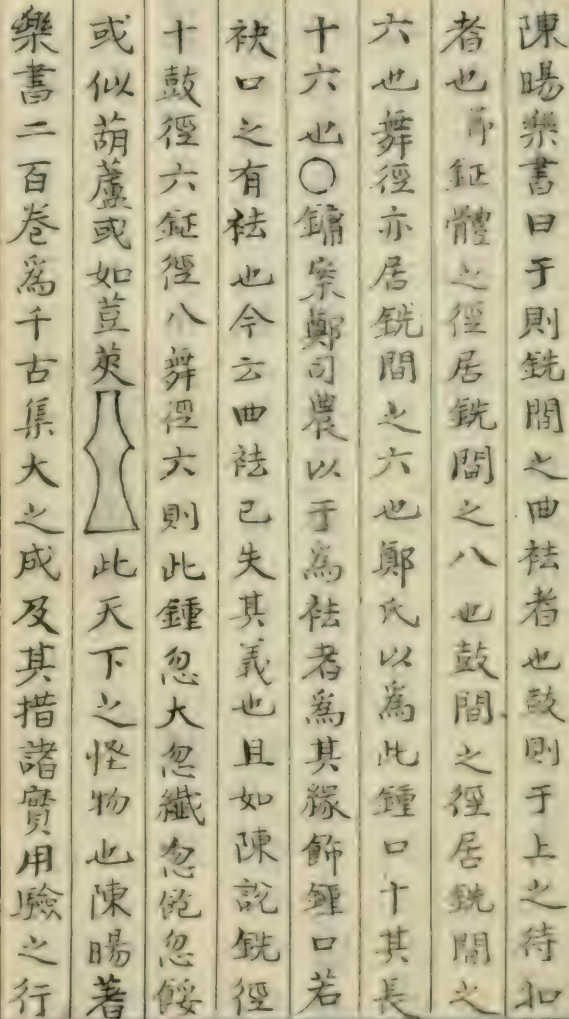 陳暘樂書曰于則銑間之曲袪者也鼓則于上之待扣
者也而鉦體之徑居銑間之八也鼓間之徑居銑間之
六也舞徑亦居銑間之六也鄭氏以爲此鍾口十其長
十六也○鏞案鄭司農以于爲袪者爲其緣飾鍾口若
袂口之有袪也今云曲袪已失其義也且如陳說銑徑
十鼓徑六鉦徑八舞徑六則此鍾忽大忽纖忽飽忽餒
或似葫蘆或如荳莢此天下之怪物也陳暘著
樂書二百卷爲千古集大之成及其措諸實用驗之行